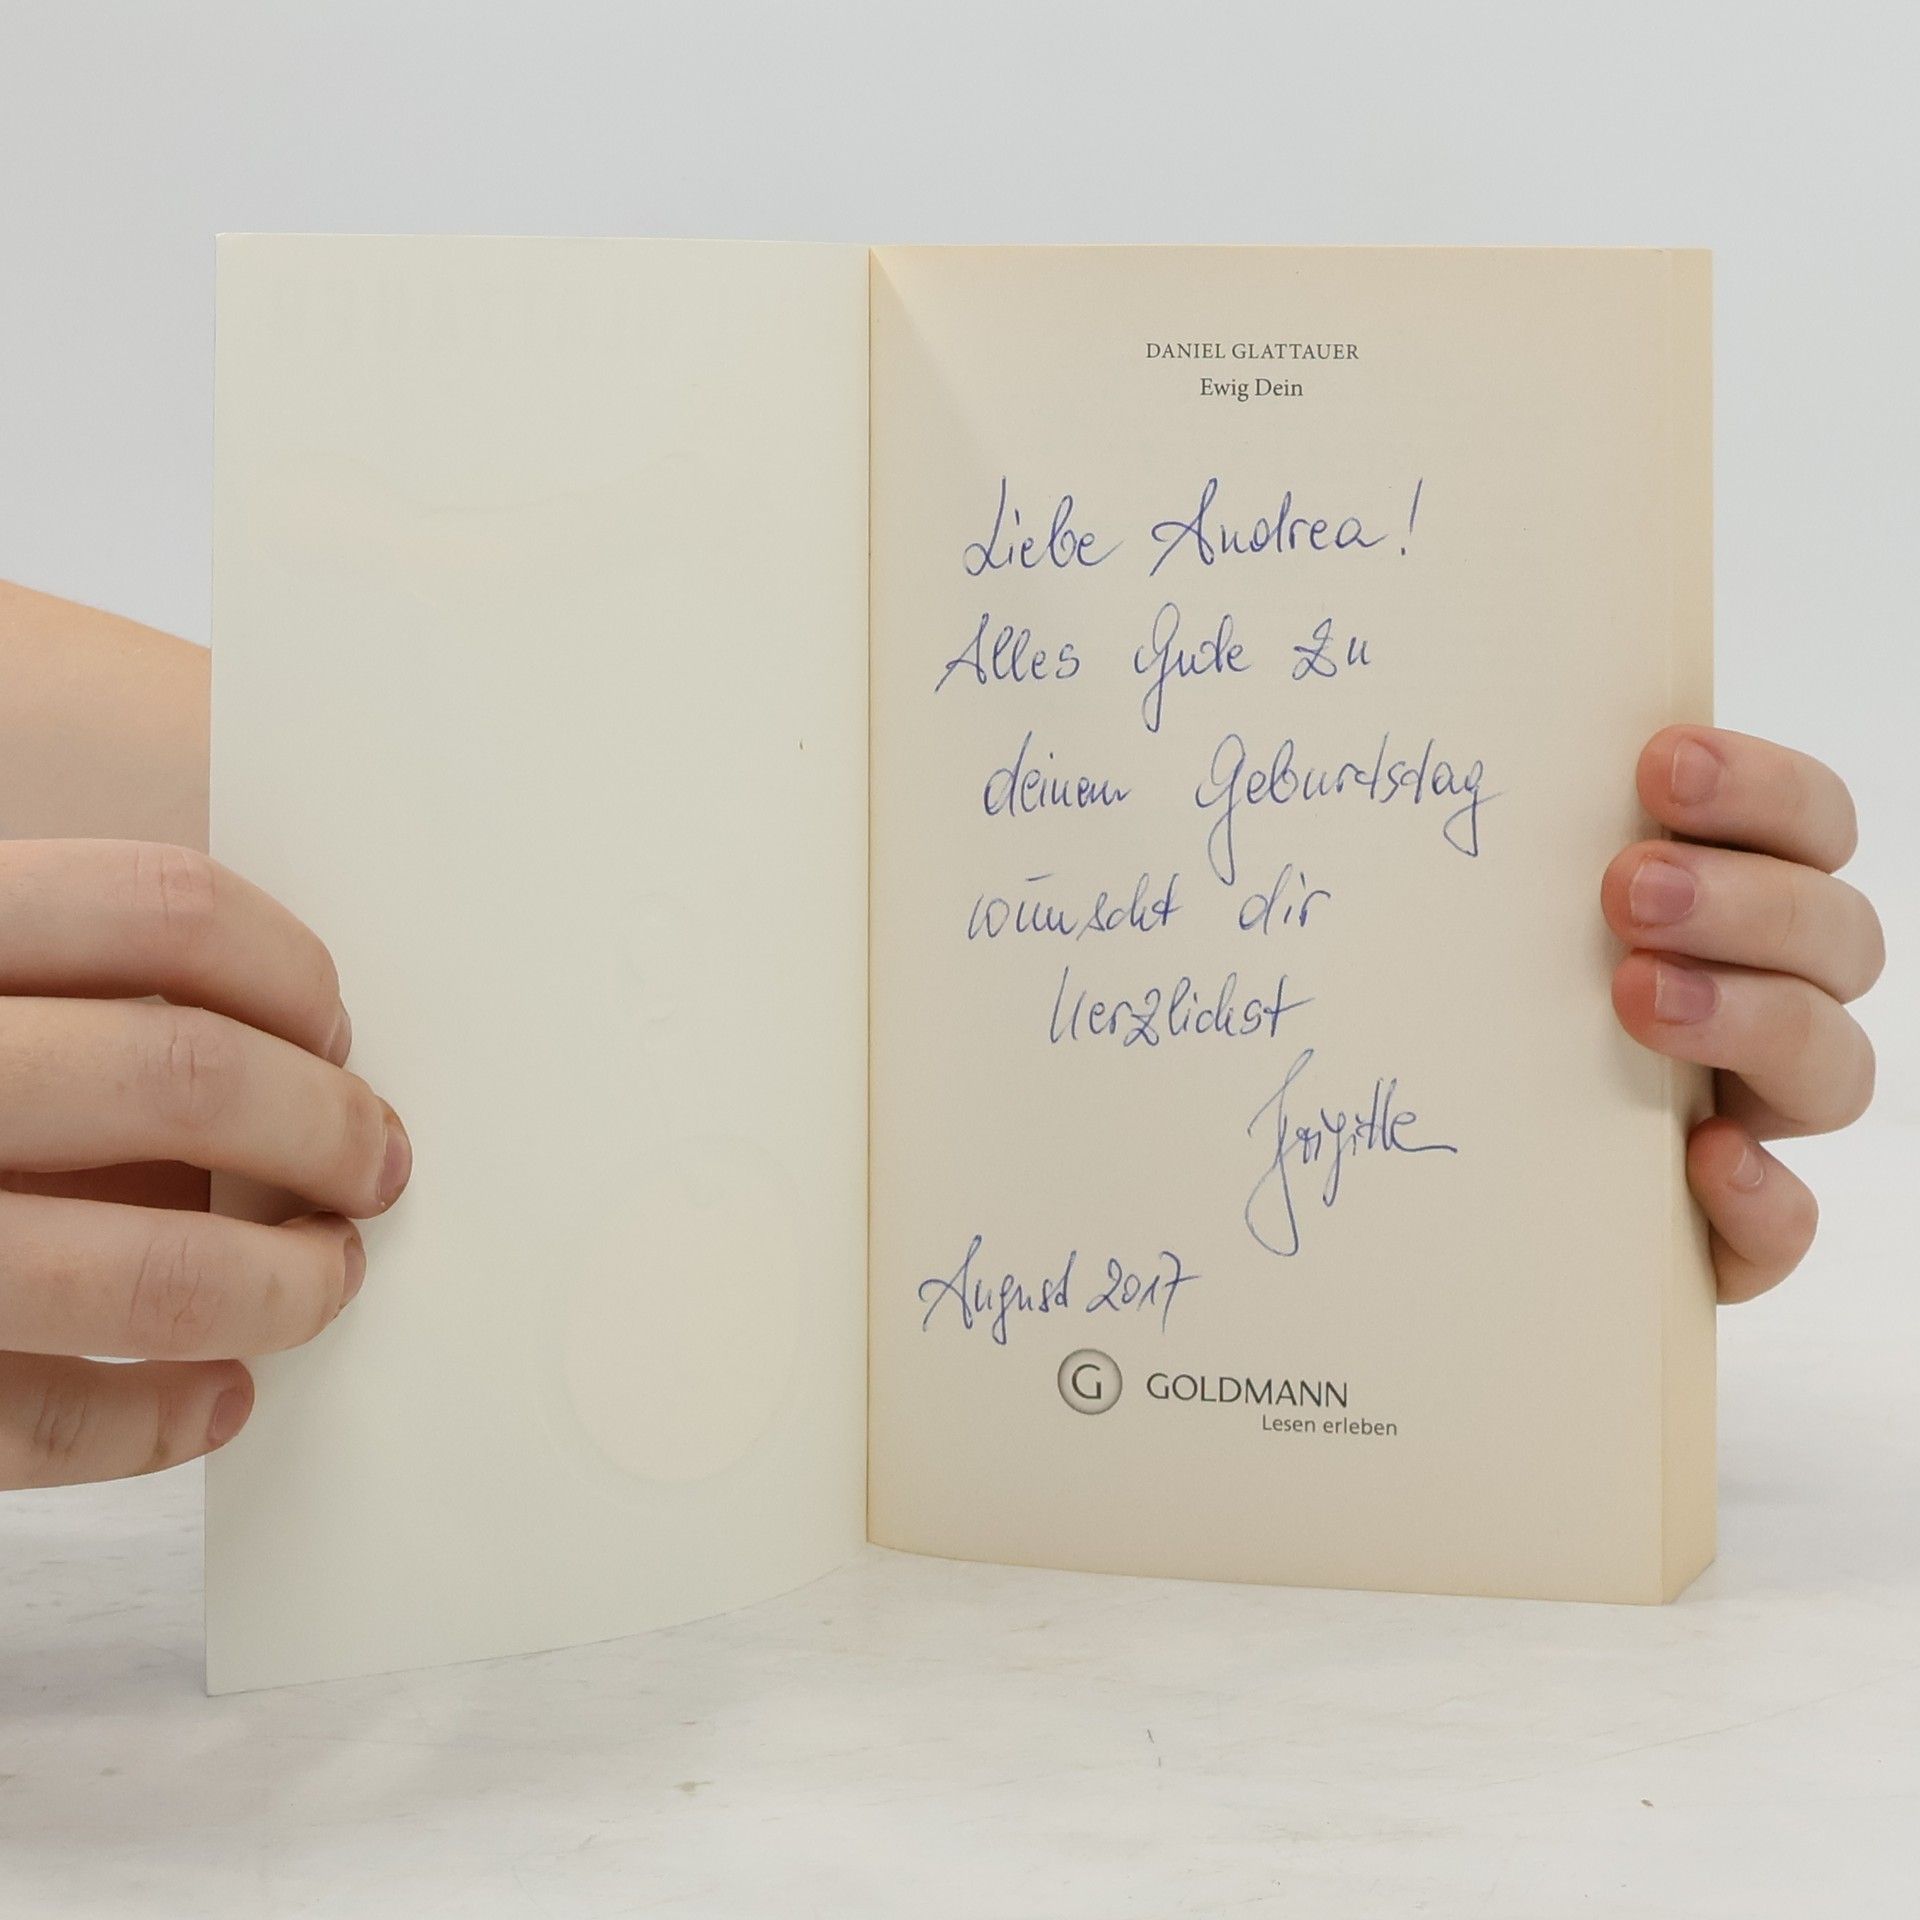 DANIEL GLATTAUER
Ewig Dein
Liebe Andrea!
Alles Gute zu
deinem Geburtstag
wünscht dir
herzlichst
Brigitte
August 2017
G GOLDMANN
Lesen erleben